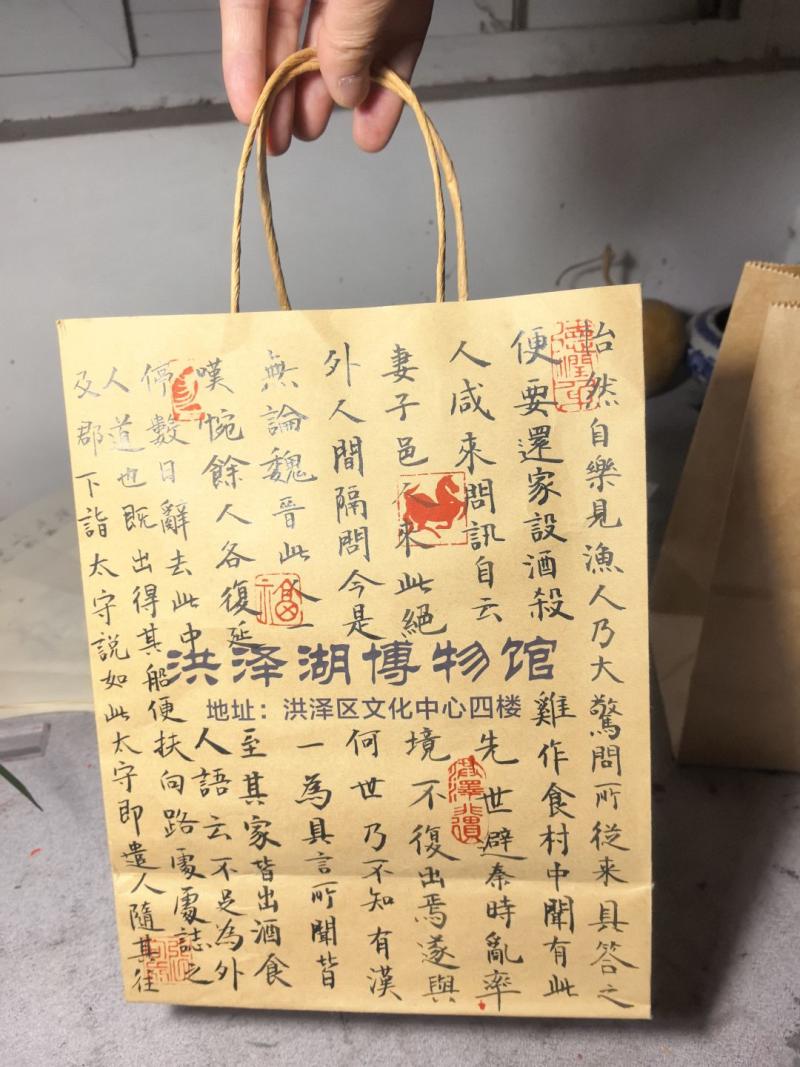 怡然自樂見漁人乃大驚問所從来具答之
便要還家設酒殺雞作食村中聞有此
人咸来問訊自云先世避秦時亂率
妻子邑人来此絕境不復出焉遂與
外人間隔問今是何世乃不知有漢
無論魏晉此人一一為具言所聞皆
嘆惋餘人各復延至其家皆出酒食
停數日辭去此中人語云不足為外
人道也既出得其船便扶向路處處誌之
及郡下詣太守說如此太守即遣人隨其往
洪泽湖博物馆
地址：洪泽区文化中心四楼
福
洪澤非遺